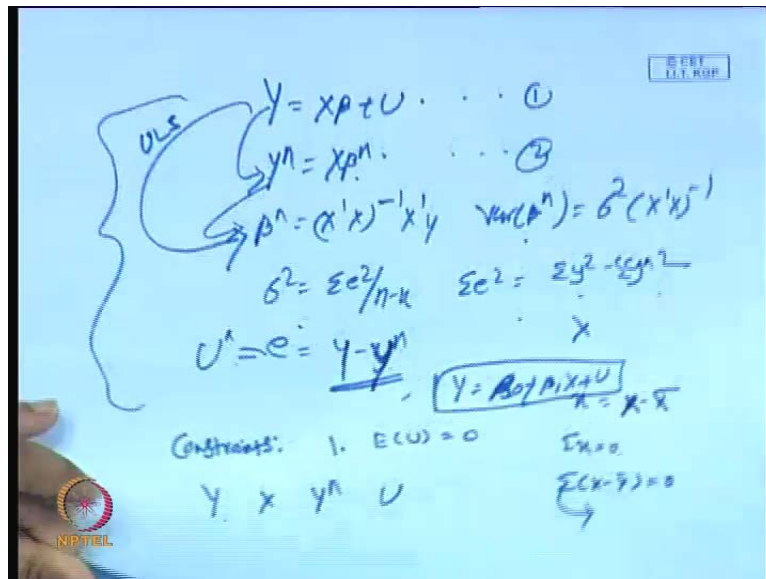 © CET
I.I.T. KGP
Y = Xβ + U . . . . ①
OLS
Y^ = Xβ^ . . . . ②
β^ = (X'X)⁻¹X'y var(β^) = σ²(X'X)⁻¹
σ² = Σe²/n-k Σe² = Σy² -
U^ = e = Y - Y^
X
Y = β0 + β1X + U
x = X - X̄
Constraints: 1. E(U) = 0
Σx = 0
Y X Y^ U
Σ(X - X̄) = 0
NPTEL